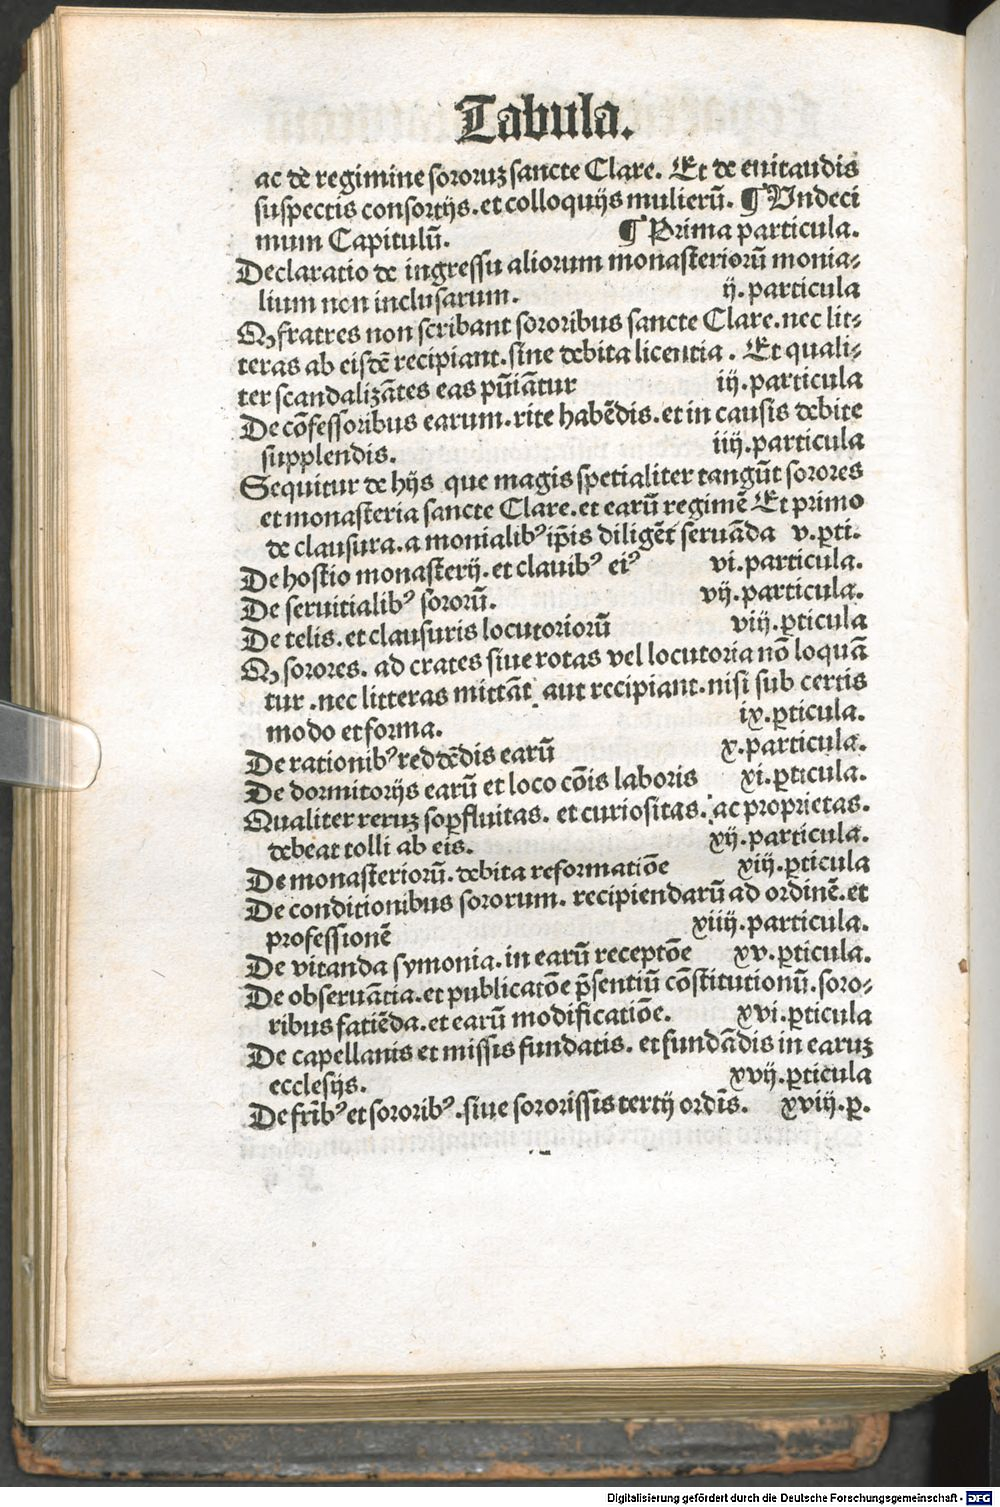 Tabula.
ac de regimine sororuꝫ sancte Clare. Et de euitandis
suspectis consortijs. et colloquijs mulierū. ¶ Vndeci
mum Capitulū. ¶ Prima particula.
Declaratio de ingressu aliorum monasteriorū monia⸗
lium non inclusarum. ij. particula
Ꝙ fratres non scribant sororibus sancte Clare. nec lit⸗
teras ab eisdē recipiant. sine debita licentia. Et quali⸗
ter scandalizātes eas pūiātur iij. particula
De cōfessoribus earum. rite habēdis. et in causis debite
supplendis. iiij. particula
Sequitur de hijs que magis spetialiter tangūt sorores
et monasteria sancte Clare. et earū regimē Et primo
de clausura. a monialibꝰ ip̄is diligēt̄ seruāda v. ꝑti.
De hostio monasterij. et clauibꝰ eiꝰ vi. particula.
De seruitialibꝰ sororū. vij. particula.
De telis. et clausuris locutoriorū viij. ꝑticula
Ꝙ sorores. ad crates siue rotas vel locutoria nō loquā
tur. nec litteras mittāt aut recipiant. nisi sub certis
modo et forma. ix. ꝑticula.
De rationibꝰ reddēdis earū x. particula.
De dormitorijs earū et loco cōis laboris xi. ꝑticula.
Qualiter reruꝫ soꝑfluitas. et curiositas. ac proprietas.
debeat tolli ab eis. xij. particula.
De monasteriorū. debita reformatiōe xiij. ꝑticula
De conditionibus sororum. recipiendarū ad ordinē. et
professionē xiiij. particula.
De vitanda symonia. in earū receptōe xv. ꝑticula.
De obseruātia. et publicatōe p̄sentiū cōstitutionū. soro⸗
ribus fatiēda. et earū modificatiōe. xvi. ꝑticula
De capellanis et missis fundatis. et fundādis in earuꝫ
ecclesijs. xvij. ꝑticula
De fr̄ibꝰ et sororibꝰ. siue sororissīs tertij ordīs. xviij. ꝑ.
Digitalisierung gefördert durch die Deutsche Forschungsgemeinschaft - DFG